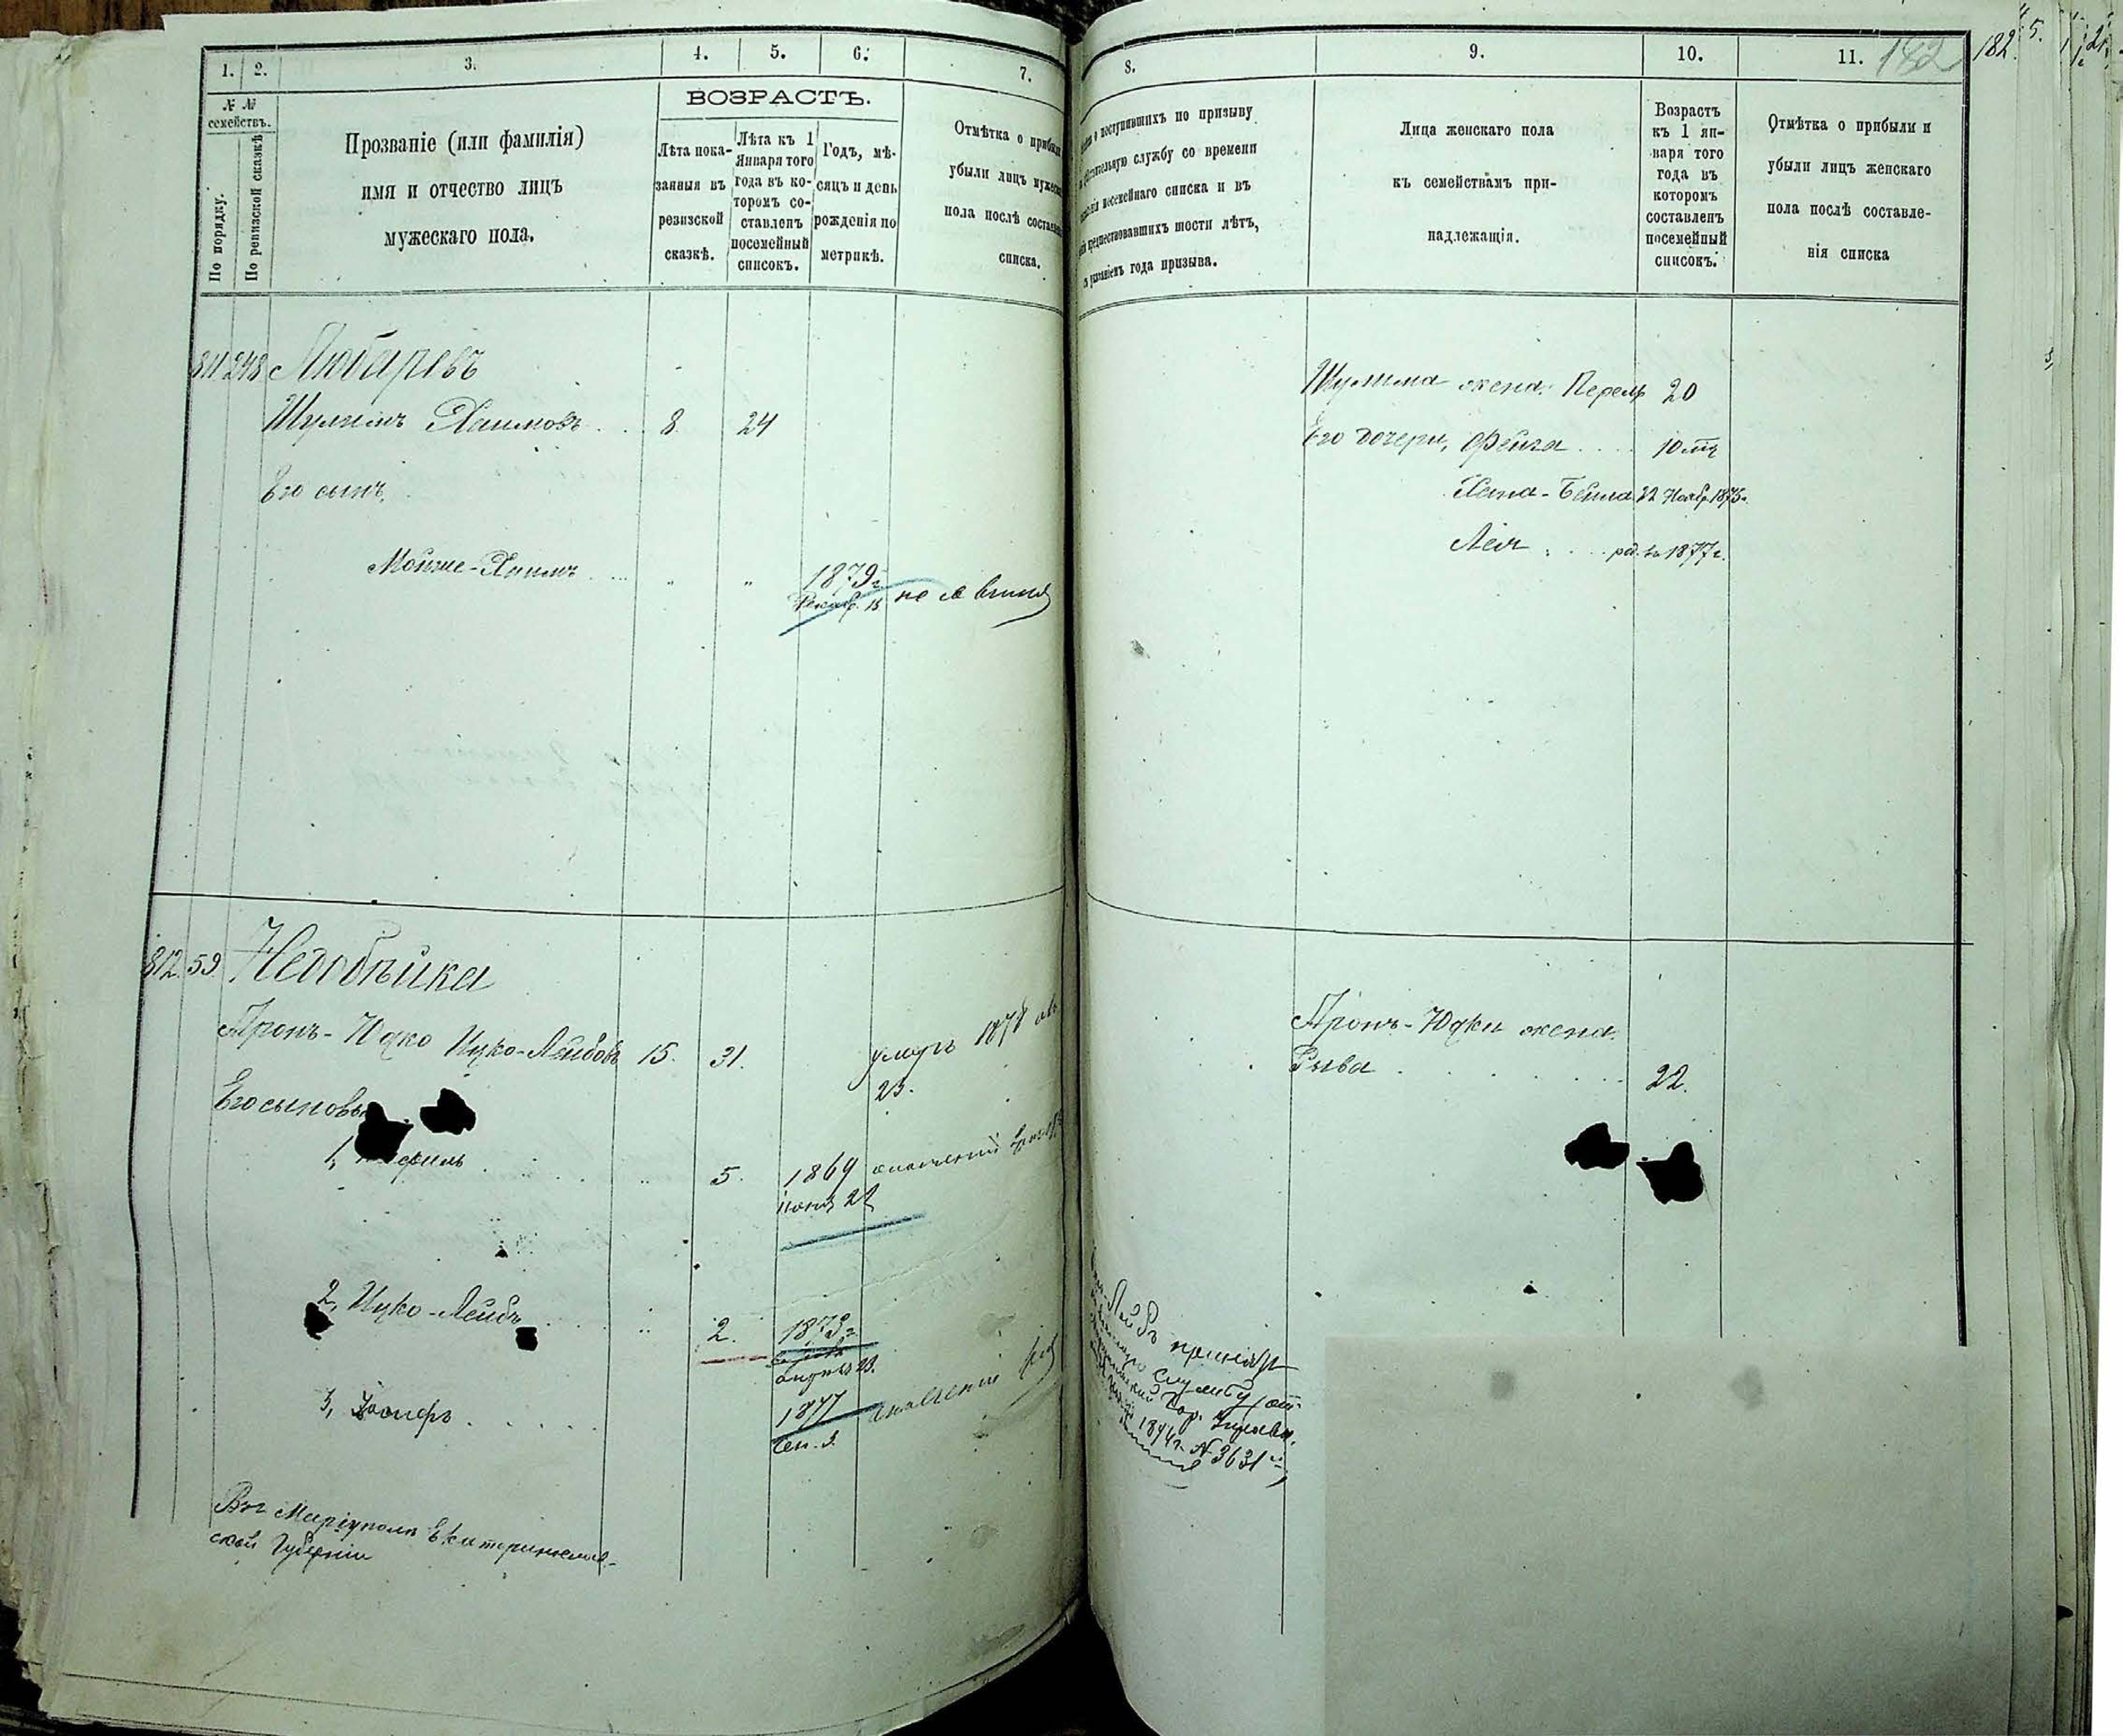 1. 2. 3. 4. 5. 6. 7.
№ №
семействъ.
По порядку.
По ревизской сказкѣ
Прозваніе (или фамилія)
имя и отчество лицъ
мужескаго пола.
ВОЗРАСТЪ.
Лѣта пока-
занныя въ
ревизской
сказкѣ.
Лѣта къ 1
Января того
года въ ко-
торомъ со-
ставленъ
посемейный
списокъ.
Годъ, мѣ-
сяцъ и день
рожденія по
метрикѣ.
Отмѣтка о прибыли
убыли лицъ мужеск
пола послѣ составл
списка.
811 248 Любаревъ
Шулимъ Хаимовъ 8 24
Его сынъ,
Мойше-Хаимъ " " 1879 г.
Декаб. 15 не явился
812 59 Недобѣйка
Аронъ-Юдко Ицко-Лейбовъ 15. 31. умеръ 1878
23.
Его сыновья
1, 5. 1869
Іюня 22
2, Ицко-Лейбъ 2. 1873 г.
апрѣля 23.
3, Іосифъ 1877
Сен. 3.
Въ г. Маріуполѣ Екатеринослав-
ской Губерніи
8. 9. 10. 11. 182 182
о поступившихъ по призыву
службу со времени
посемейнаго списка и въ
предшествовавшихъ шести лѣтъ,
съ указаніемъ года призыва.
Лица женскаго пола
къ семействамъ при-
надлежащія.
Возрастъ
къ 1 ян-
варя того
года въ
которомъ
составленъ
посемейный
списокъ.
Отмѣтка о прибыли и
убыли лицъ женскаго
пола послѣ составле-
нія списка
Шулима жена Перель 20
Его дочери, Фейга 10 лѣтъ
Хана-Бейла 22 Нояб. 1875 г.
Лея род. въ 1877 г.
Аронъ-Юдки жена
Рыва 22.
Лейбъ принятъ
службу
Гор. Управы
1894 г. № 3631